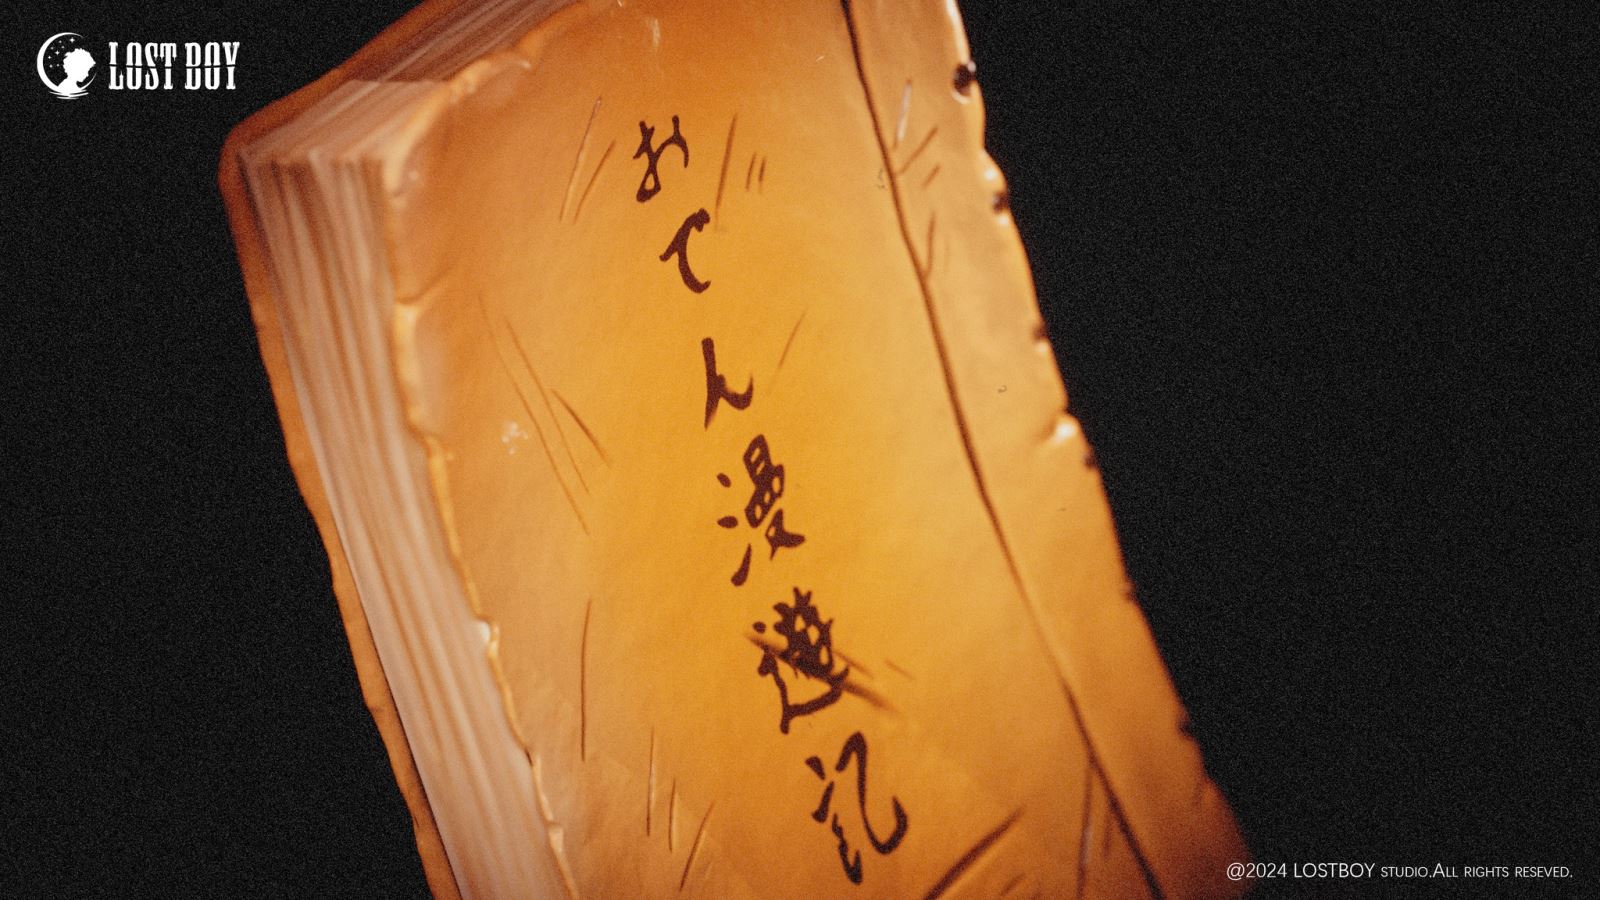 LOST BOY
おでん漫遊記
@2024 LOSTBOY STUDIO.ALL RIGHTS RESEVED.